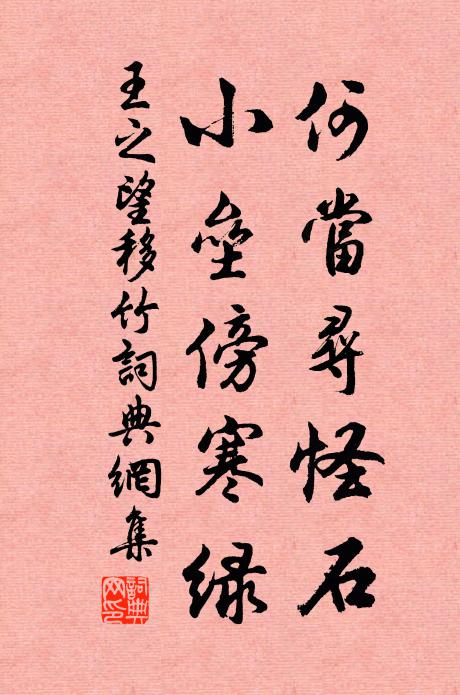 何當尋怪石
小壘傍寒綠
王之望移竹詞典網集
詞典網印